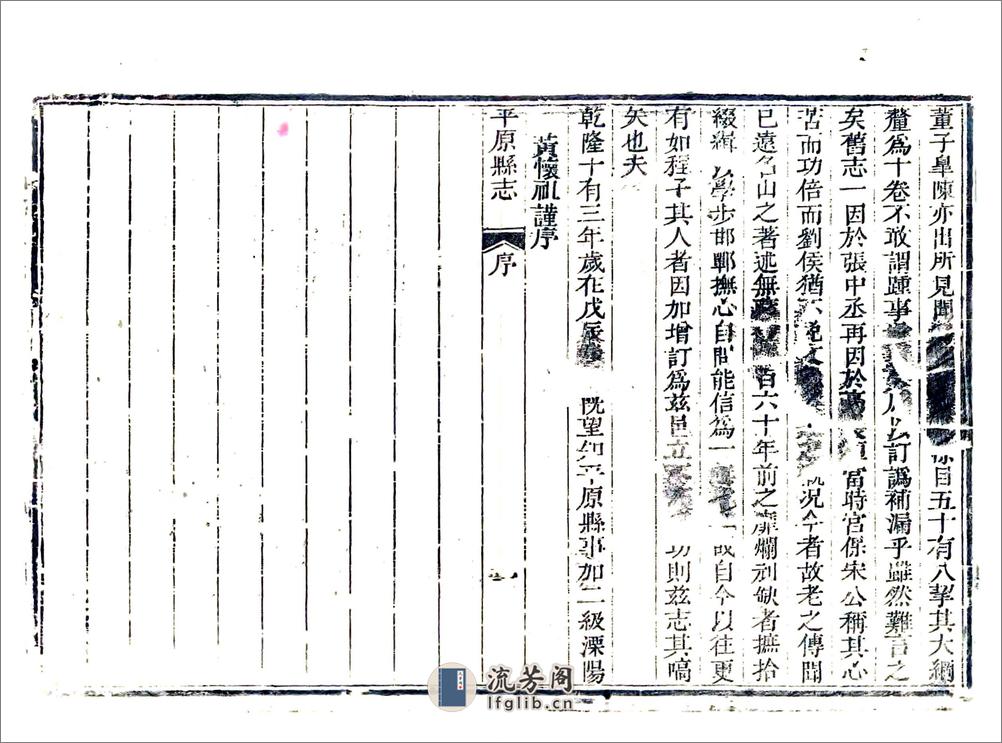 董子皐陳亦出所見聞條目五十有八挈其大綱
釐爲十卷不敢謂踵事訂譌補漏乎雖然難言之
矣舊志一因於張中丞再因於高當時宮保宋公稱其心
苦而功倍而劉侯猶不況今者故老之傳聞
已遠名山之著述無百六十年前之靡爛剝缺者摭拾
綴緝學步邯鄲撫心自問能信爲一自今以往更
有如程子其人者因加增訂爲茲邑立功則茲志其嚆
矢也夫
乾隆十有三年歲在戊辰既望知平原縣事加二級溧陽
黃懷祖謹序
平原縣志
序
流芳阁
lfglib.cn